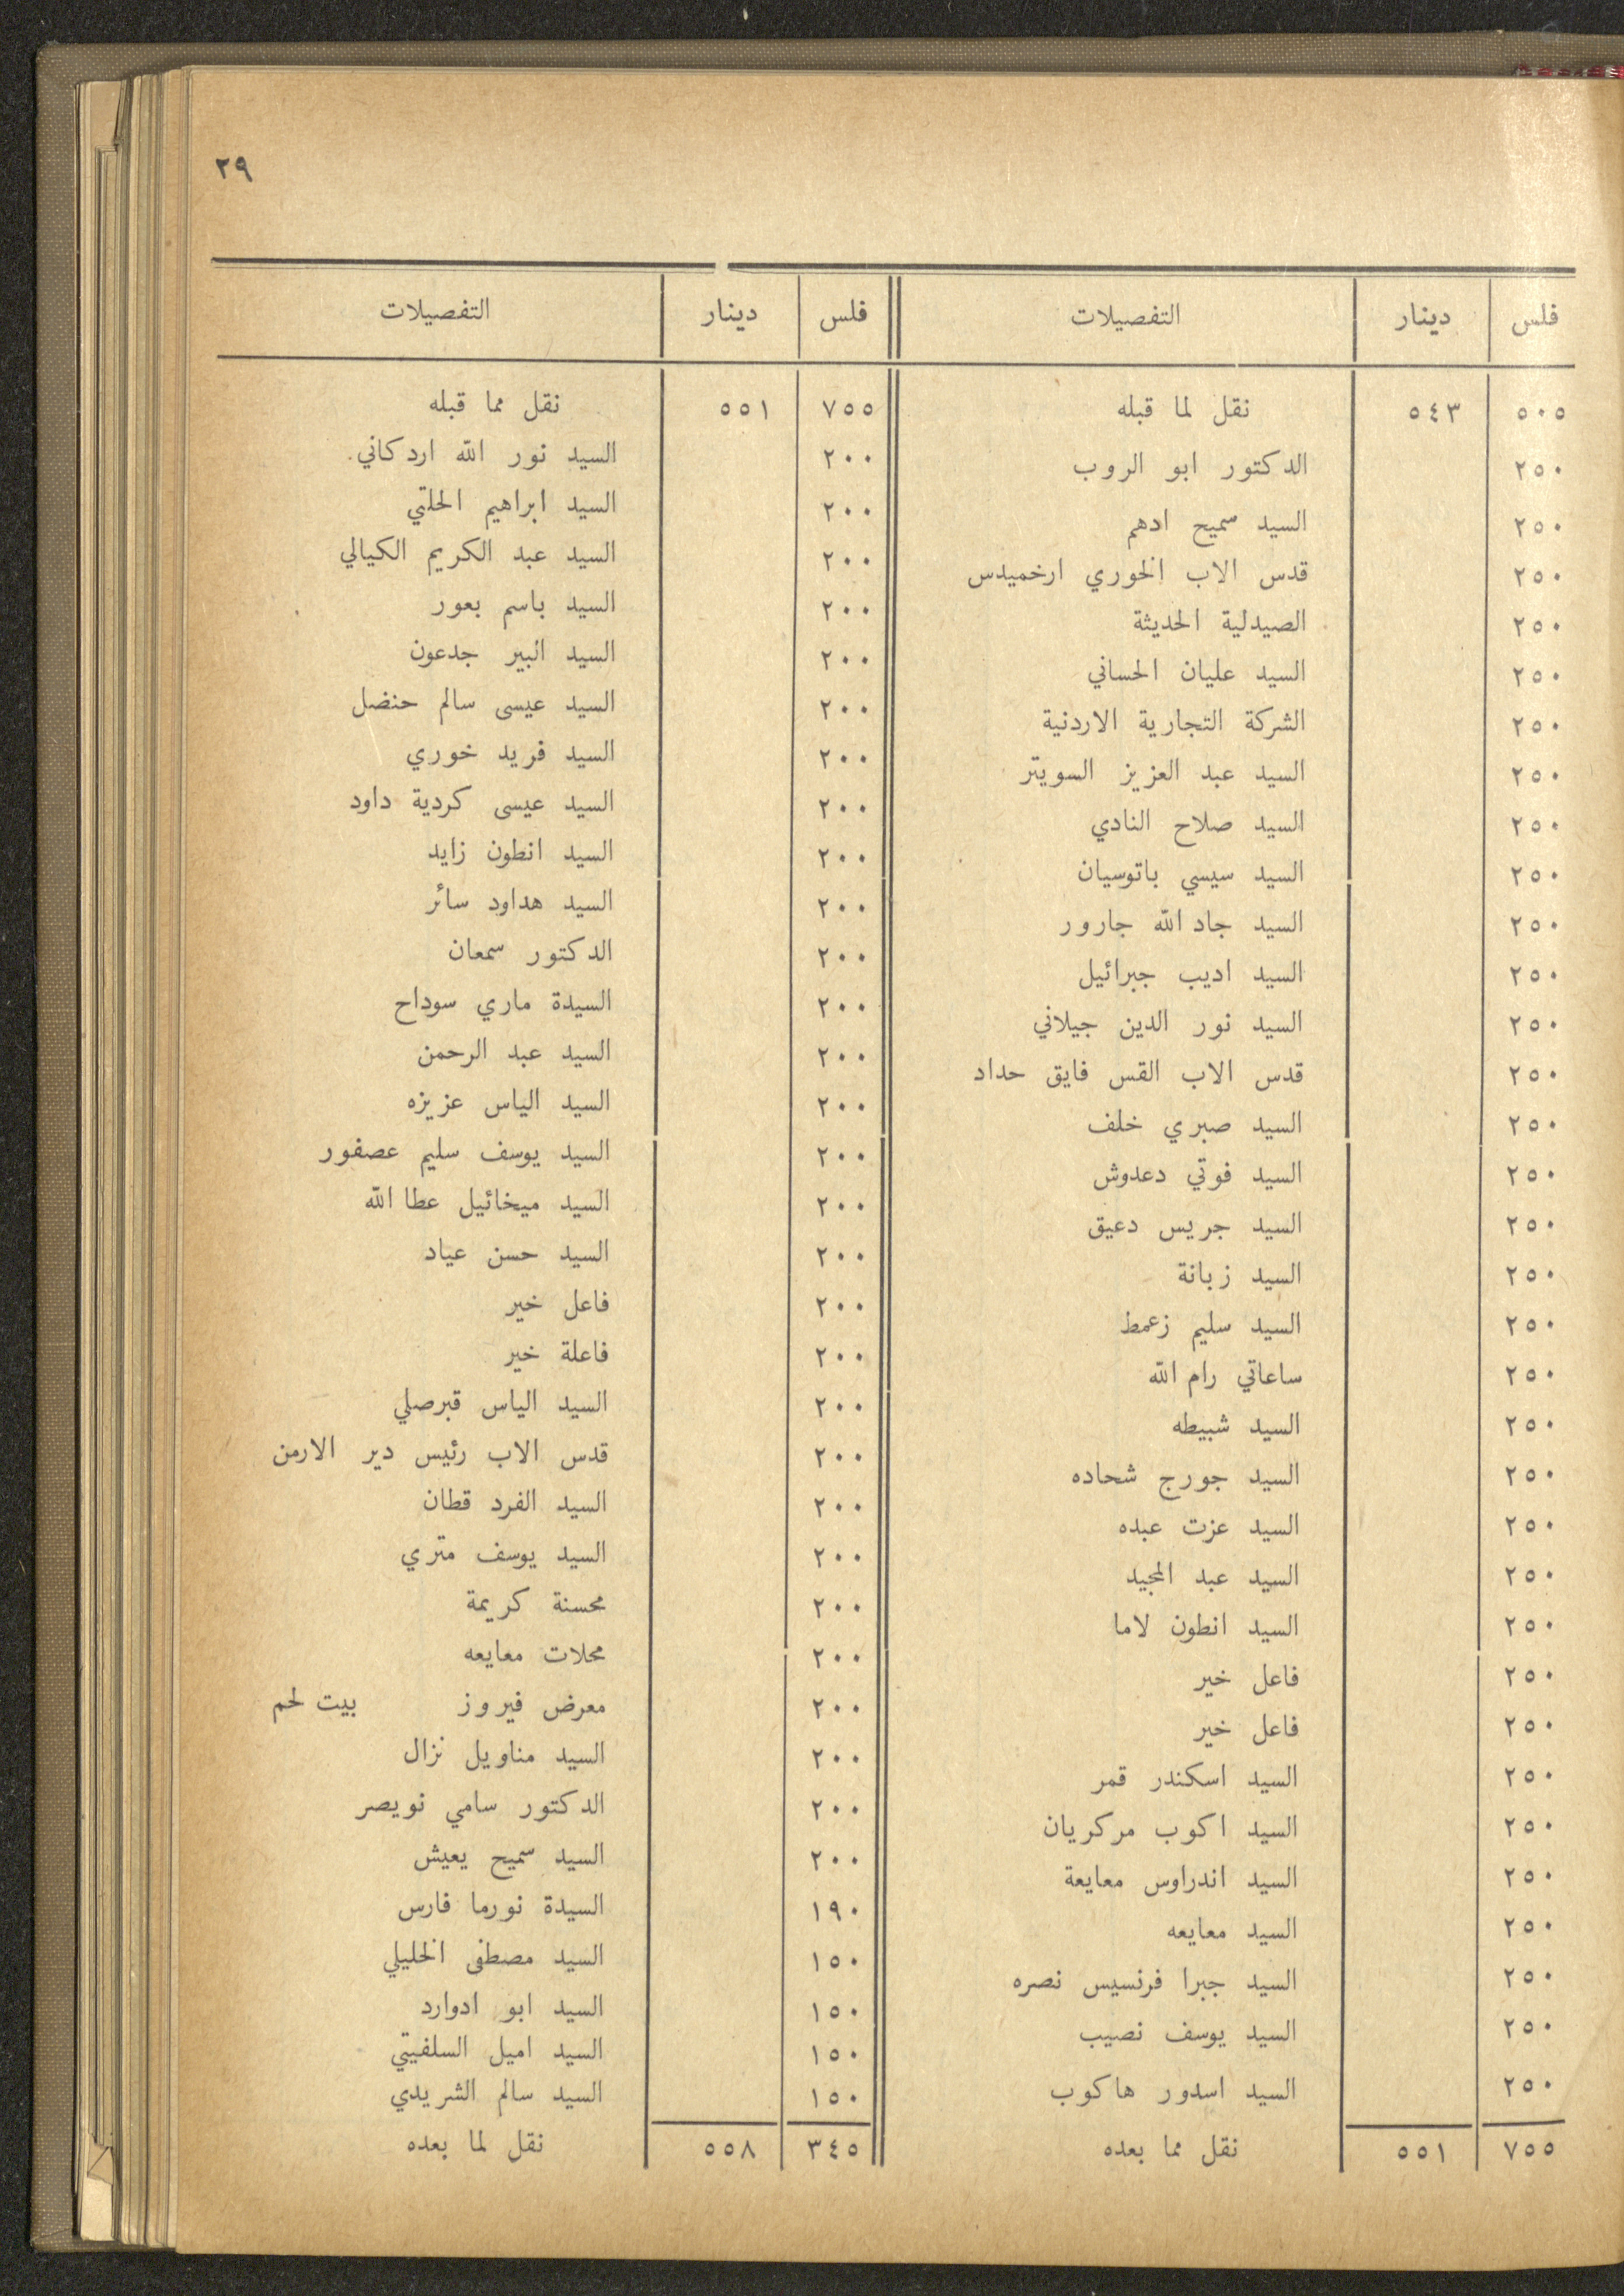 ٢٩
فلس دينار التفصيلات
٥٠٥ ٥٤٣ نقل لما قبله
٢٥٠ الدكتور ابو الروب
٢٥٠ السيد سميح ادهم
٢٥٠ قدس الاب الخوري ارخميدس
٢٥٠ الصيدلية الحديثة
٢٥٠ السيد عليان الحساني
٢٥٠ الشركة التجارية الاردنية
٢٥٠ السيد عبد العزيز السويتر
٢٥٠ السيد صلاح النادي
٢٥٠ السيد سيسي باتوسيان
٢٥٠ السيد جاد الله جارور
٢٥٠ السيد اديب جبرائيل
٢٥٠ السيد نور الدين جيلاني
٢٥٠ قدس الاب القس فايق حداد
٢٥٠ السيد صبري خلف
٢٥٠ السيد فوتي دعدوش
٢٥٠ السيد جريس دعيق
٢٥٠ السيد زبانة
٢٥٠ السيد سليم زعمط
٢٥٠ ساعاتي رام الله
٢٥٠ السيد شبيطه
٢٥٠ السيد جورج شحاده
٢٥٠ السيد عزت عبده
٢٥٠ السيد عبد المجيد
٢٥٠ السيد انطون لاما
٢٥٠ فاعل خير
٢٥٠ فاعل خير
٢٥٠ السيد اسكندر قمر
٢٥٠ السيد اكوب مركريان
٢٥٠ السيد اندراوس معايعة
٢٥٠ السيد معايعه
٢٥٠ السيد جبرا فرنسيس نصره
٢٥٠ السيد يوسف نصيب
٢٥٠ السيد اسدور هاكوب
٧٥٥ ٥٥١ نقل مما بعده
فلس دينار التفصيلات
٧٥٥ ٥٥١ نقل مما قبله
٢٠٠ السيد نور الله اردكاني.
٢٠٠ السيد ابراهيم الحلتي
٢٠٠ السيد عبد الكريم الكيالي
٢٠٠ السيد باسم بعور
٢٠٠ السيد البير جدعون
٢٠٠ السيد عيسى سالم حنضل
٢٠٠ السيد فريد خوري
٢٠٠ السيد عيسى كردية داود
٢٠٠ السيد انطون زايد
٢٠٠ السيد هداود سائر
٢٠٠ الدكتور سمعان
٢٠٠ السيدة ماري سوداح
٢٠٠ السيد عبد الرحمن
٢٠٠ السيد الياس عزيزه
٢٠٠ السيد يوسف سليم عصفور
٢٠٠ السيد ميخائيل عطا الله
٢٠٠ السيد حسن عياد
٢٠٠ فاعل خير
٢٠٠ فاعلة خير
٢٠٠ السيد الياس قبرصلي
٢٠٠ قدس الاب رئيس دير الارمن
٢٠٠ السيد الفرد قطان
٢٠٠ السيد يوسف متري
٢٠٠ محسنة كريمة
٢٠٠ محلات معايعه
٢٠٠ معرض فيروز بيت لحم
٢٠٠ السيد مناويل نزال
٢٠٠ الدكتور سامي نويصر
٢٠٠ السيد سميح يعيش
١٩٠ السيدة نورما فارس
١٥٠ السيد مصطفى الخليلي
١٥٠ السيد ابو ادوارد
١٥٠ السيد اميل السلفيتي
١٥٠ السيد سالم الشريدي
٣٤٥ ٥٥٨ نقل لما بعده